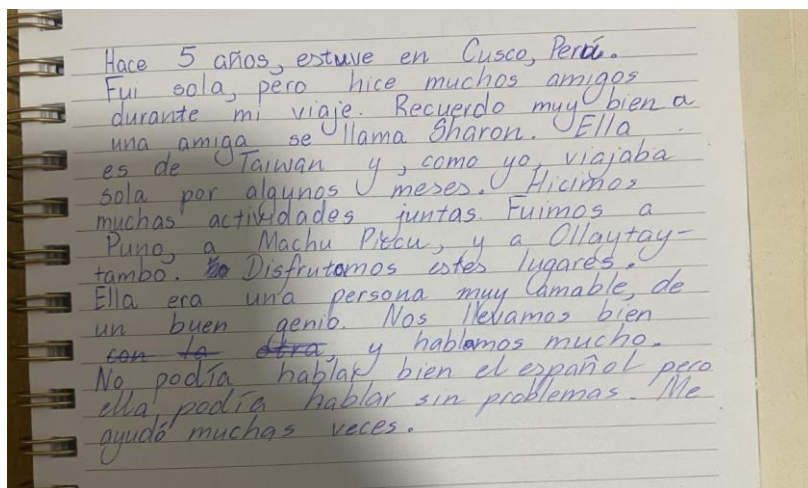 Hace 5 años, estuve en Cusco, Perú.
Fui sola, pero hice muchos amigos
durante mi viaje. Recuerdo muy bien a
una amiga se llama Sharon. Ella
es de Taiwan y, como yo, viajaba
sola por algunos meses. Hicimos
muchas actividades juntas. Fuimos a
Puno, a Machu Piccu, y a Ollaytay-
tambo. Disfrutamos estes lugares.
Ella era una persona muy amable, de
un buen genio. Nos llevamos bien
con la otra, y hablamos mucho.
No podía hablar bien el español pero
ella podía hablar sin problemas. Me
ayudó muchas veces.